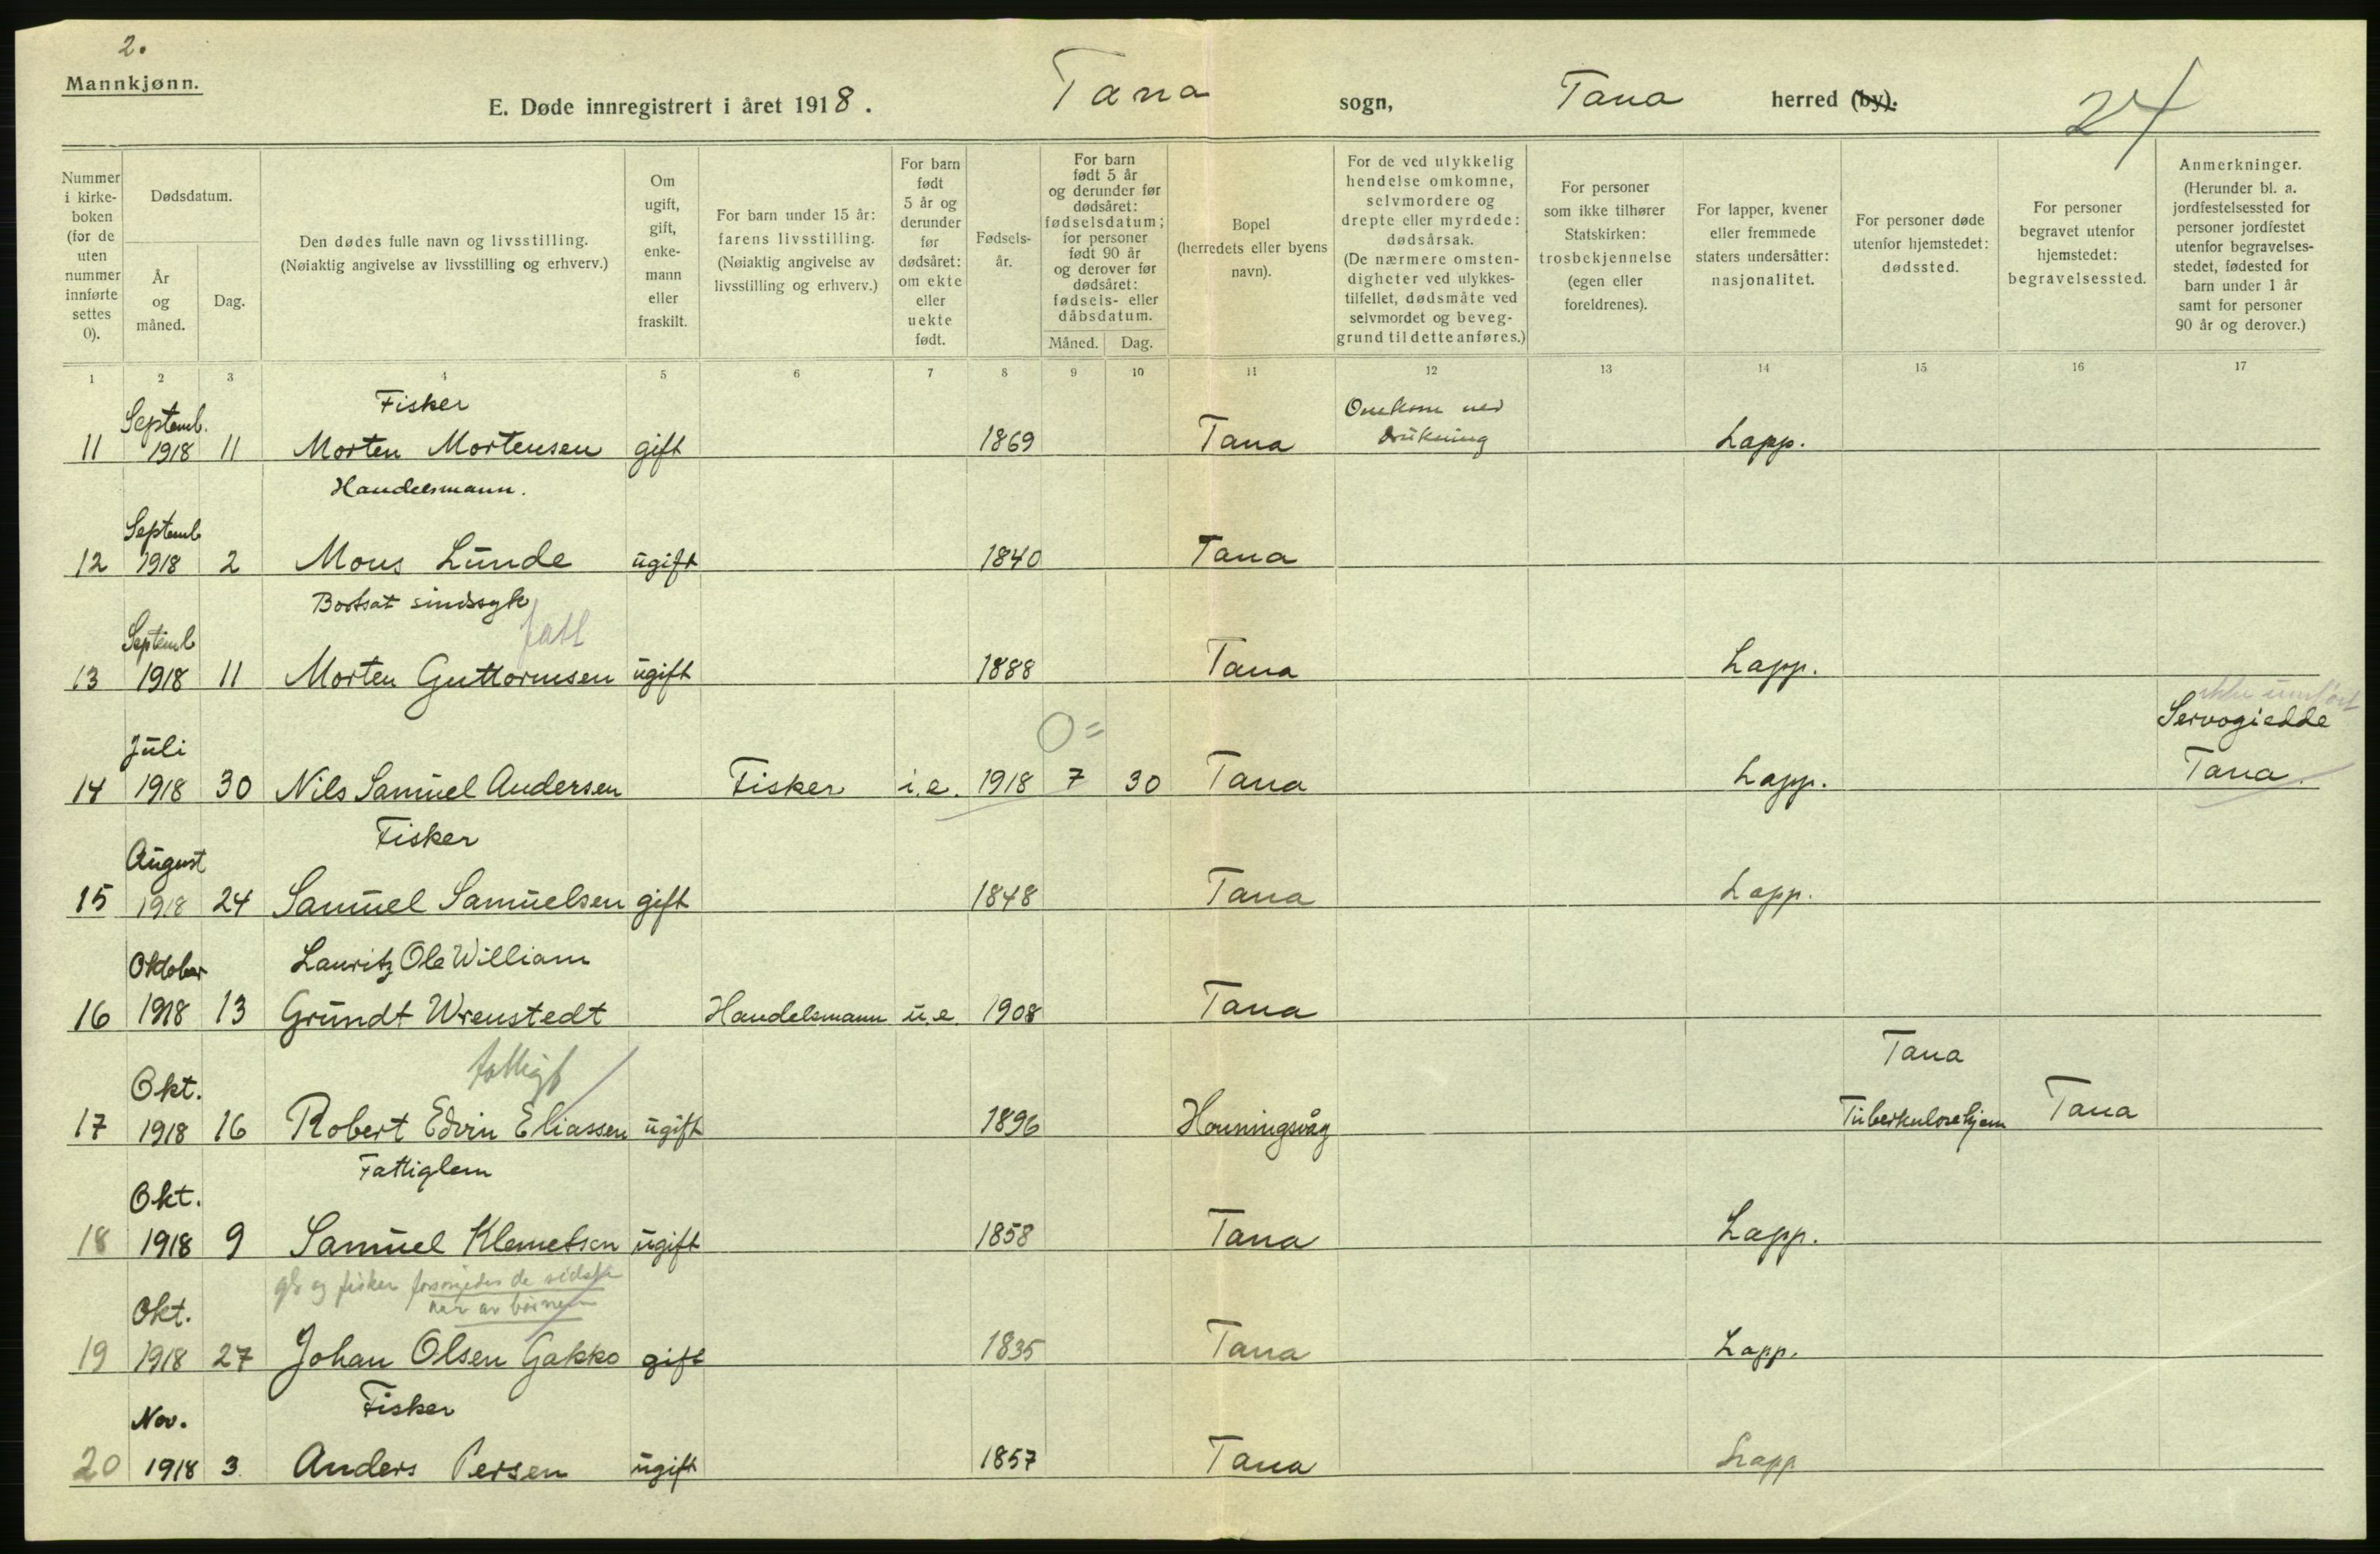 2.
Mannkjønn.
E. Døde innregistrert i året 1918. Tana sogn, Tana herred (by). 24
Nummer i kirkeboken (for de uten nummer innførte settes 0).
Dødsdatum.
År og måned.
Dag.
Den dødes fulle navn og livsstilling.
(Nøiaktig angivelse av livsstilling og erhverv.)
Om ugift, gift, enkemann eller fraskilt.
For barn under 15 år: farens livsstilling.
(Nøiaktig angivelse av livsstilling og erhverv.)
For barn født 5 år og derunder før dødsåret: om ekte eller uekte født.
Fødselsår.
For barn født 5 år og derunder før dødsåret: fødselsdatum; for personer født 90 år og derover før dødsåret: fødsels- eller dåbsdatum.
Måned. Dag.
Bopel (herredets eller byens navn).
For de ved ulykkelig hendelse omkomne, selvmordere og drepte eller myrdede: dødsårsak.
(De nærmere omstendigheter ved ulykkestilfellet, dødsmåte ved selvmordet og beveggrund til dette anføres.)
For personer som ikke tilhører Statskirken: trosbekjennelse (egen eller foreldrenes).
For lapper, kvener eller fremmede staters undersåtter: nasjonalitet.
For personer døde utenfor hjemstedet: dødssted.
For personer begravet utenfor hjemstedet: begravelsessted.
Anmerkninger.
(Herunder bl. a. jordfestelsessted for personer jordfestet utenfor begravelsesstedet, fødested for barn under 1 år samt for personer 90 år og derover.)
1 2 3 4 5 6 7 8 9 10 11 12 13 14 15 16 17
Septemb. Fisker Omkom ved
11 1918 11 Morten Mortensen gift 1869 Tana drukning Lapp.
Handelsmann.
Septemb
12 1918 2 Mons Lunde ugift 1840 Tana
Bortsat sindssyk
Septemb fatt
13 1918 11 Morten Guttormsen ugift 1888 Tana Lapp.
ikke
Juli 0= Servogiedde
14 1918 30 Nils Samuel Andersen Fisker i.e. 1918 7 30 Tana Lapp. Tana.
Fisker
August
15 1918 24 Samuel Samuelsen gift 1848 Tana Lapp.
Oktober Lauritz Ole William
16 1918 13 Grundt Wrenstedt Handelsmann u.e. 1908 Tana
Okt. fattigf Tana
17 1918 16 Robert Edvin Eliassen ugift 1896 Honningsvåg Tuberkulosehjem Tana
Fattiglem
Okt.
18 1918 9 Samuel Klemetsen ugift 1858 Tana Lapp.
og fisker forsørgedes de sidste
Okt. år av børnene
19 1918 27 Johan Olsen Gakko gift 1835 Tana Lapp.
Nov. Fisker
20 1918 3 Anders Persen ugift 1857 Tana Lapp